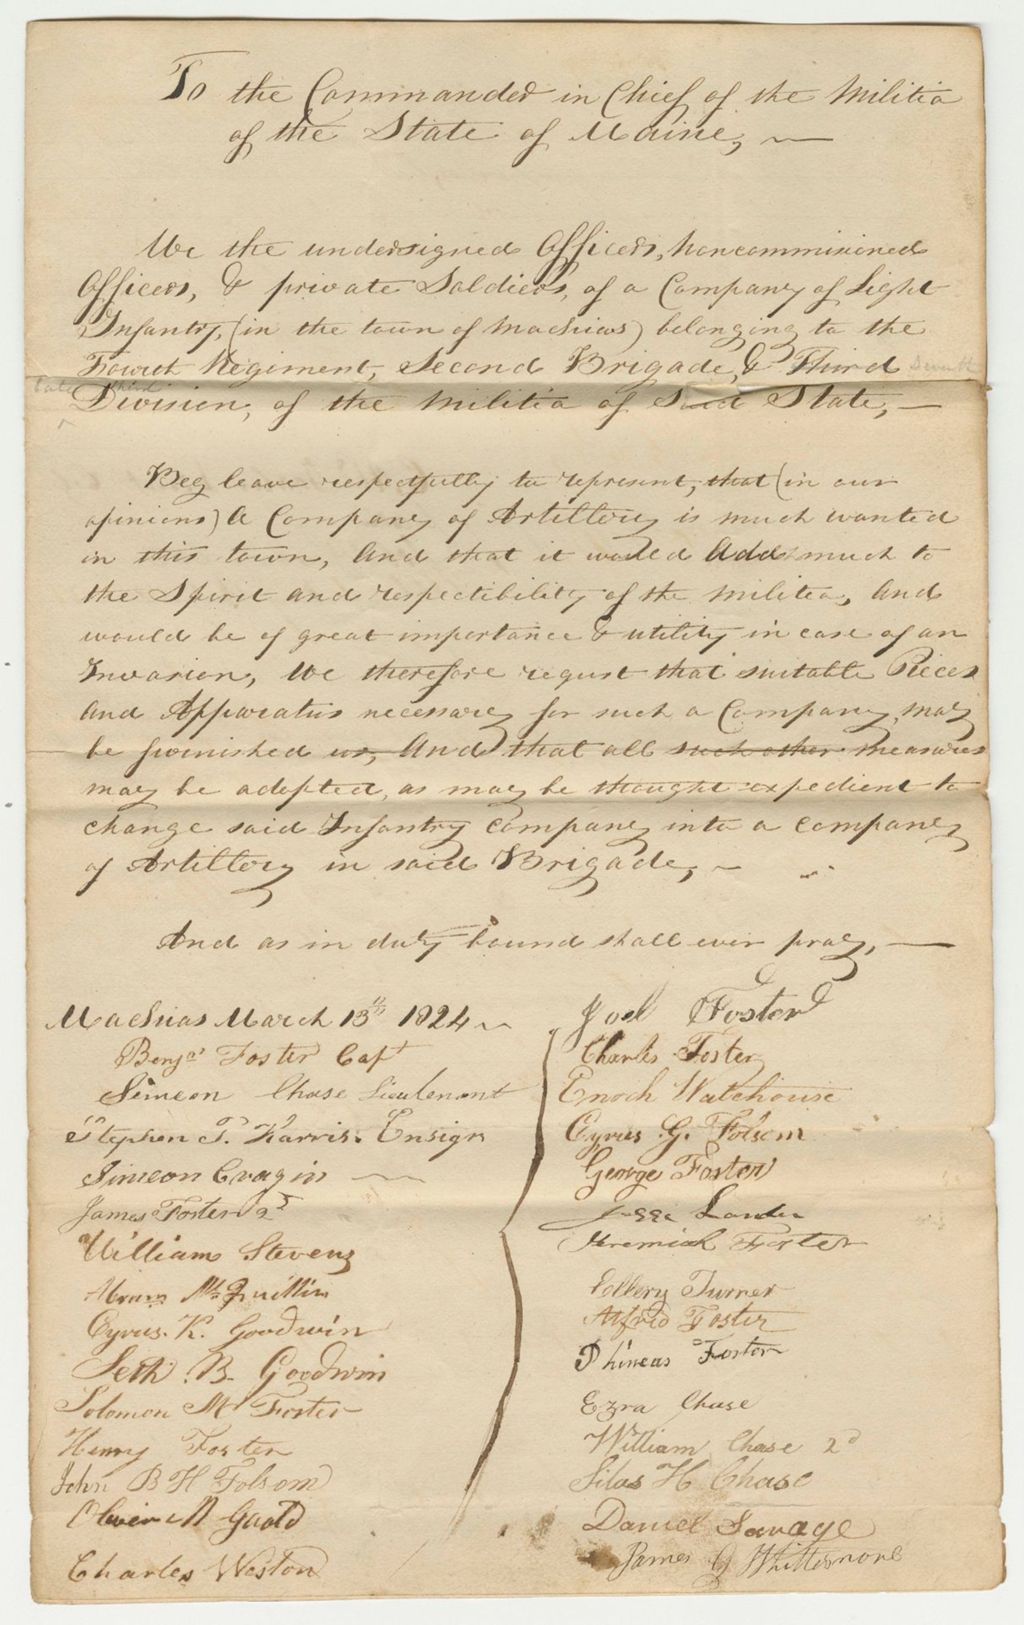 To the Commander in Chief of the Militia
of the State of Maine,
We the undersigned Officers, noncommissioned
Officers, & private Soldiers, of a Company of Light
Infantry, (in the town of Machias) belonging to the
Fourth Regiment, Second Brigade, & Third
Division, of the Militia of Said State,
Beg leave respectfully to represent, that (in our
opinions) A Company of Artillery is much wanted
in this town, And that it would Add much to
the Spirit and respectibility of the Militia, And
would be of great importance & utility in case of an
Invasion, We therefore requst that suitable Pieces
And Apparatus necessary for such a Company, may
be furnished us, And that all such other measures
may be adopted, as may be thought expedient to
change said Infantry Company into a Company
of Artillery in said Brigade,
And as in duty bound shall ever pray,
Machias March 13th 1824
Benja Foster Capt
Simeon Chase Lieutenant
Stephen P. Harris. Ensign
Simeon Cragin
James Foster 2d
William Stevens
Abram McQuillin
Cyrus. K. Goodwin
Seth. B. Goodwin
Solomon M Foster
Henry Foster
John B H Folsom
Oliver M Goold
Charles Weston
Joel Foster
Charles Foster
Enoch Watehouse
Cyrus G. Folsom
George Foster
Jesse
Jeremiah Foster
Ellery Turner
Alfred Foster
Phineas Foster
Ezra Chase
William Chase 2d
Silas H Chase
Daniel Savage
James G Whittemore